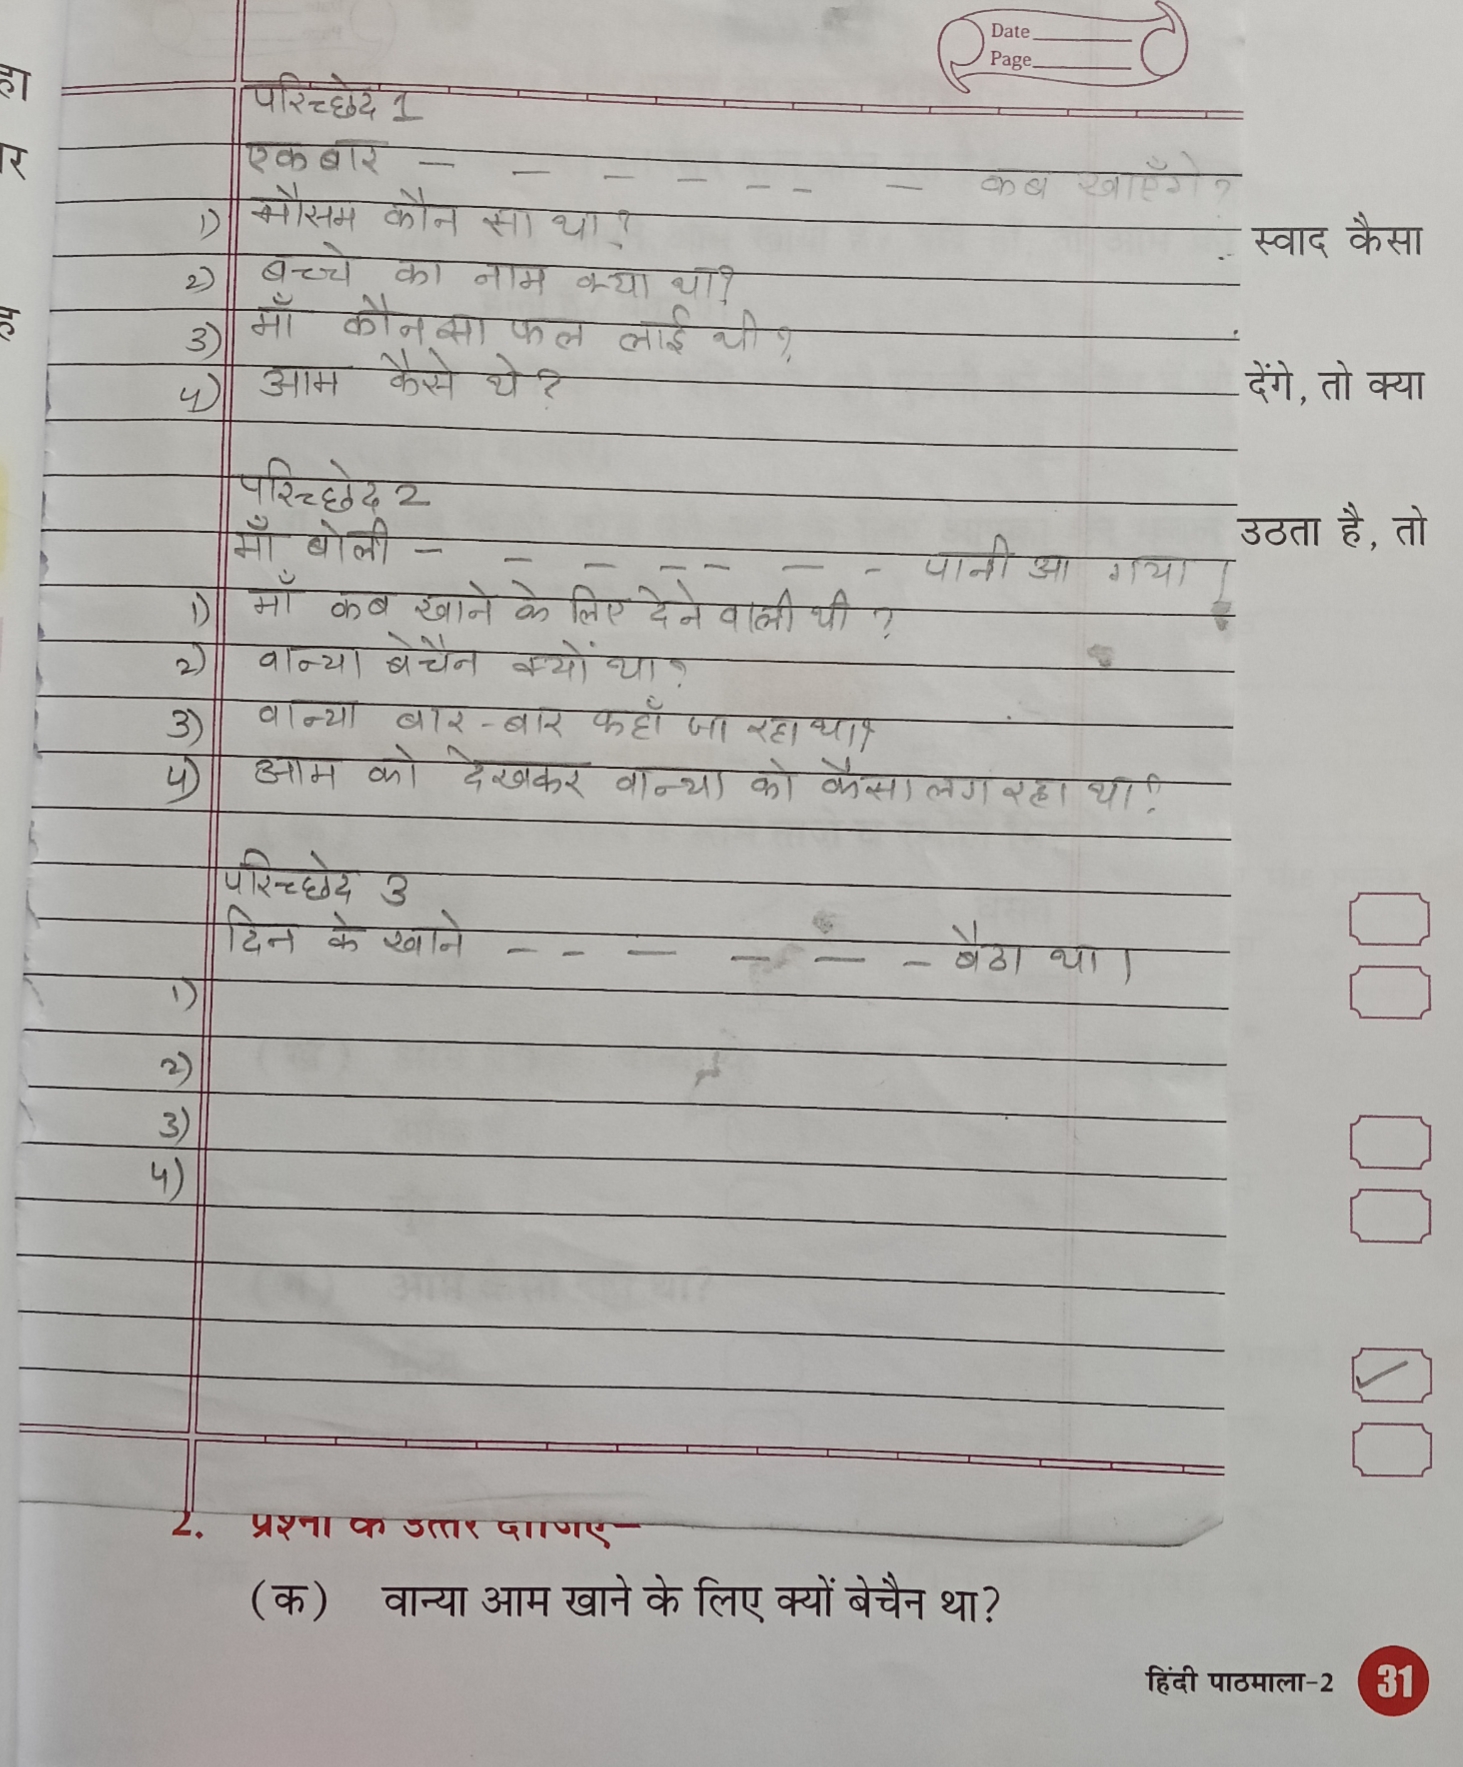 Date
Page
हा
परिच्छेद 1
र
एक बार - - - - - - - कब खाएँगे?
1) मौसम कौन सा था?
स्वाद कैसा
2) बच्चे का नाम क्या था?
3) माँ कौन सा फल लाई थी?
4) आम कैसे थे?
देंगे, तो क्या
परिच्छेद 2
उठता है, तो
माँ बोली - - - - - - - पानी आ गया।
1) माँ कब खाने के लिए देने वाली थी?
2) वान्या बेचैन क्यों था?
3) वान्या बार-बार कहाँ जा रहा था?
4) आम को देखकर वान्या को कैसा लग रहा था?
परिच्छेद 3
दिन के खाने - - - - - - बैठा था।
1)
2)
3)
4)
2. प्रश्नों के उत्तर दीजिए—
(क) वान्या आम खाने के लिए क्यों बेचैन था?
हिंदी पाठमाला-2 31